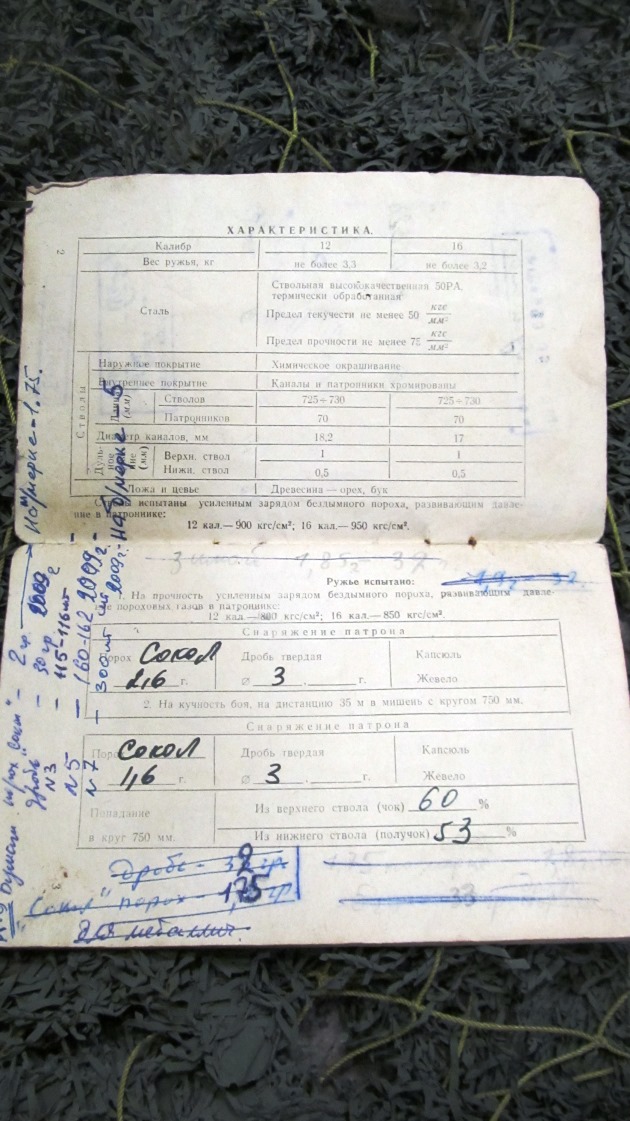 2
ХАРАКТЕРИСТИКА.
Калибр 12 16
Вес ружья, кг не более 3,3 не более 3,2
Сталь
Ствольная высококачественная 50РА, термически обработанная
Предел текучести не менее 50 кгс/мм²
Предел прочности не менее 75 кгс/мм²
Стволы
Наружное покрытие Химическое окрашивание
Внутреннее покрытие Каналы и патронники хромированы
(мм) Стволов 725÷730 725÷730
Патронников 70 70
Диаметр каналов, мм 18,2 17
Дульное (мм) Верхн. ствол 1 1
Нижн. ствол 0,5 0,5
Ложа и цевье Древесина — орех, бук
испытаны усиленным зарядом бездымного пороха, развивающим давле-
ние в патроннике:
12 кал.— 900 кгс/см²; 16 кал.— 950 кгс/см².
Ружье испытано:
На прочность усиленным зарядом бездымного пороха, развивающим давле-
пороховых газов в патроннике:
12 кал.—800 кгс/см²; 16 кал.— 850 кгс/см².
Снаряжение патрона
Порох Сокол Дробь твердая Капсюль
2,6 г. ∅ 3 . г. Жевело
2. На кучность боя, на дистанцию 35 м в мишень с кругом 750 мм.
Снаряжение патрона
Порох Сокол Дробь твердая Капсюль
1,6 г. ∅ 3 . г. Жевело
Попадание в круг 750 мм.
Из верхнего ствола (чок) 60 %
Из нижнего ствола (получок) 53 %
3
Дробь - 32 гр.
"Сокол" порох - 1,75 гр
Для металлич.
порох "Сокол" - 2 гр. 2009 г
Дробь - 30 гр.
N3 - 115-116 шт
N5 - 160-162 2009 г.
N7 - 300 шт 2009 г.
На мерке - 1.75.
На мерке - 5